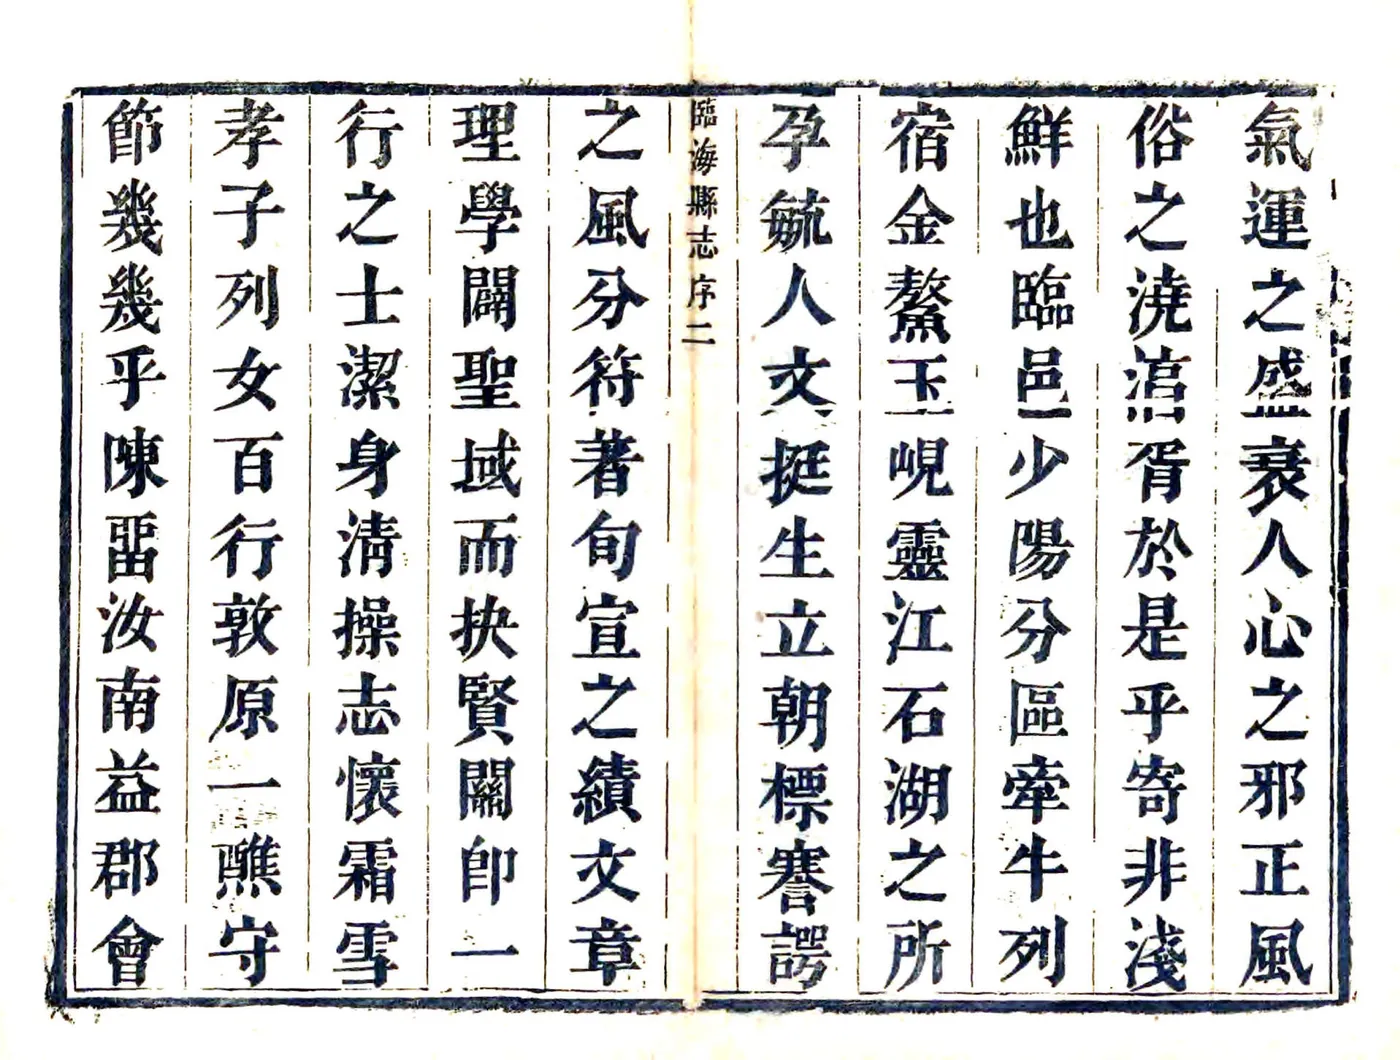 氣運之盛衰人心之邪正風
俗之澆湻胥於是乎寄非淺
鮮也臨邑少陽分區牽牛列
宿金鰲玉峴靈江石湖之所
孕毓人文挺生立朝標謇諤
臨海縣志 序 二
之風分符著旬宣之績文章
理學闢聖域而抉賢關卽一
行之士潔身清操志懷霜雪
孝子列女百行敦原一醮守
節幾幾乎陳畱汝南益郡會